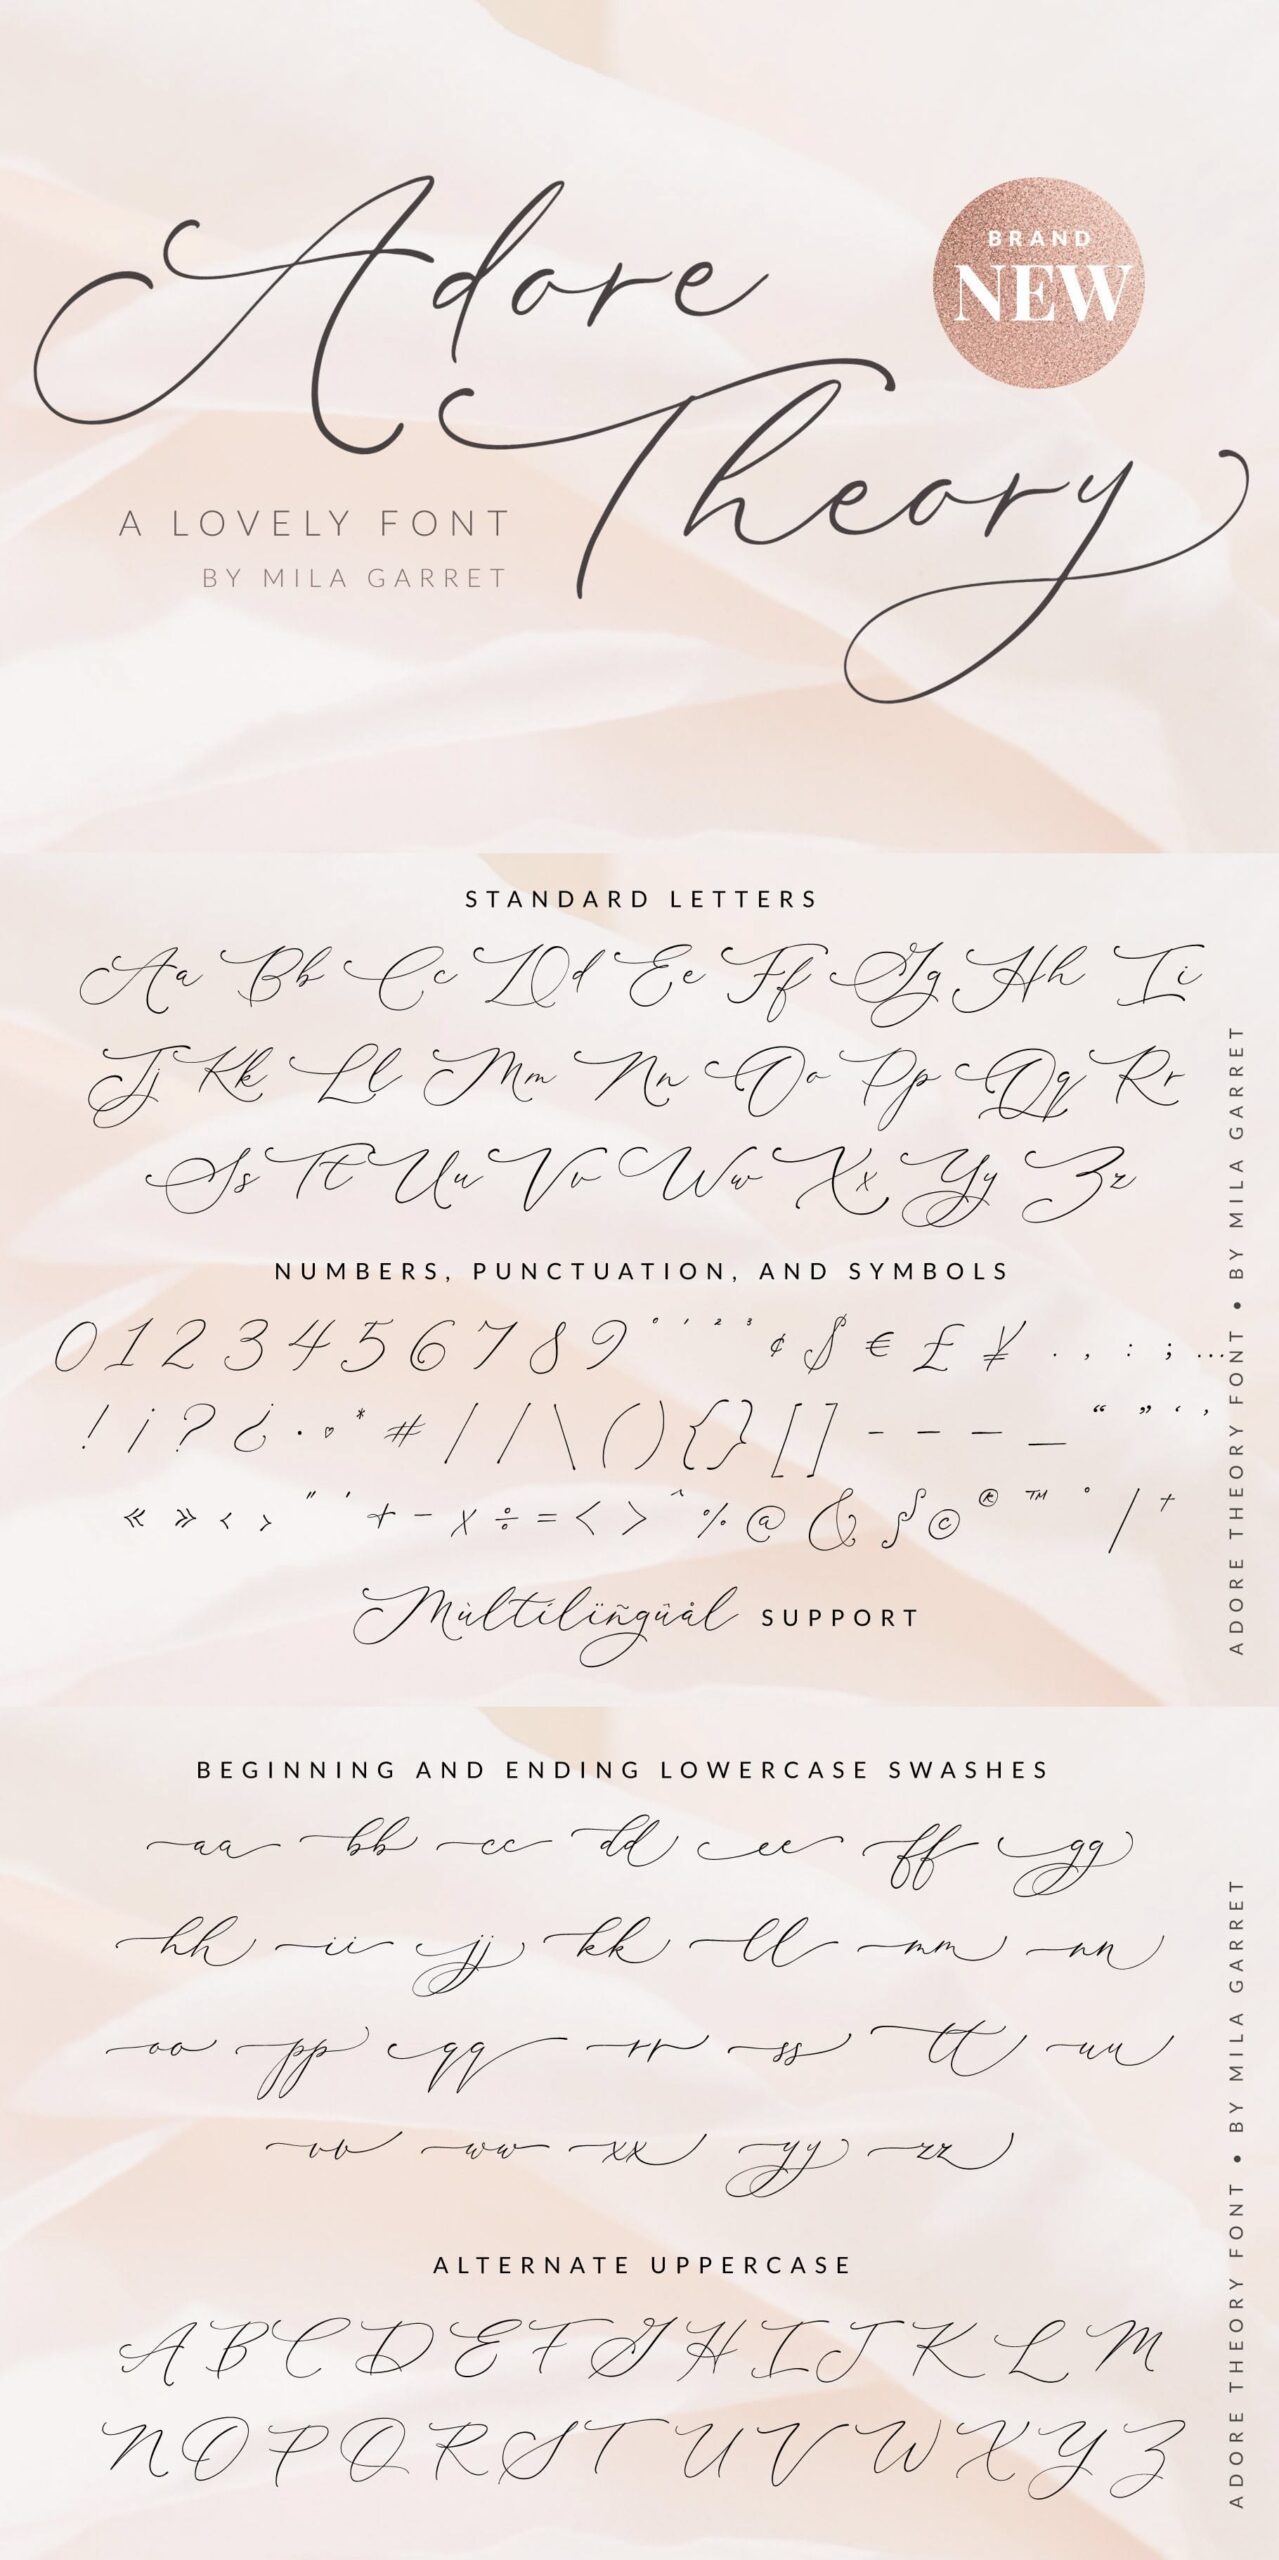 Adore
BRAND
NEW
Theory
A LOVELY FONT
BY MILA GARRET
STANDARD LETTERS
Aa Bb Cc Dd Ee Ff Gg Hh Ii
Jj Kk Ll Mm Nn Oo Pp Qq Rr
Ss Tt Uu Vv Ww Xx Yy Zz
NUMBERS, PUNCTUATION, AND SYMBOLS
0 1 2 3 4 5 6 7 8 9 ⁰ ¹ ² ³ ¢ $ € £ ¥ . , : ; …
! ¡ ? ¿ · ♡ * # / / \ ( ) { } [ ] - – — _ “ ” ‘ ’
« » ‹ › " ' + − × ÷ = < > ^ % @ & § © ® ™ ° | †
Mùltilïñgûål SUPPORT
ADORE THEORY FONT • BY MILA GARRET
BEGINNING AND ENDING LOWERCASE SWASHES
aa bb cc dd ee ff gg
hh ii jj kk ll mm nn
oo pp qq rr ss tt uu
vv ww xx yy zz
ALTERNATE UPPERCASE
A B C D E F G H I J K L M
N O P Q R S T U V W X Y Z
ADORE THEORY FONT • BY MILA GARRET